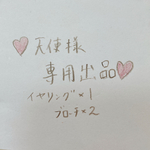 天使様
専用出品
イヤリング×1
ブローチ×2